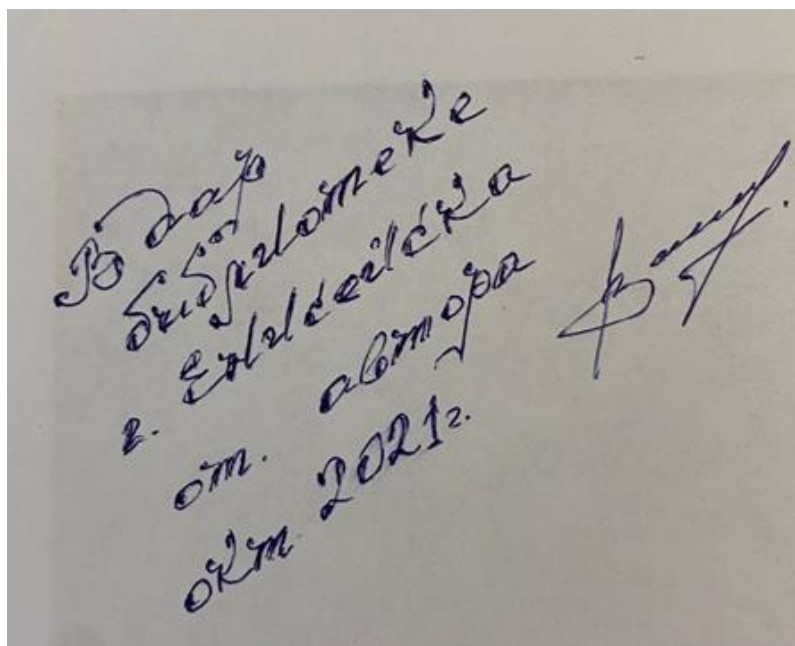 В дар
библиотеке
г. Енисейска
от. автора
окт 2021г.